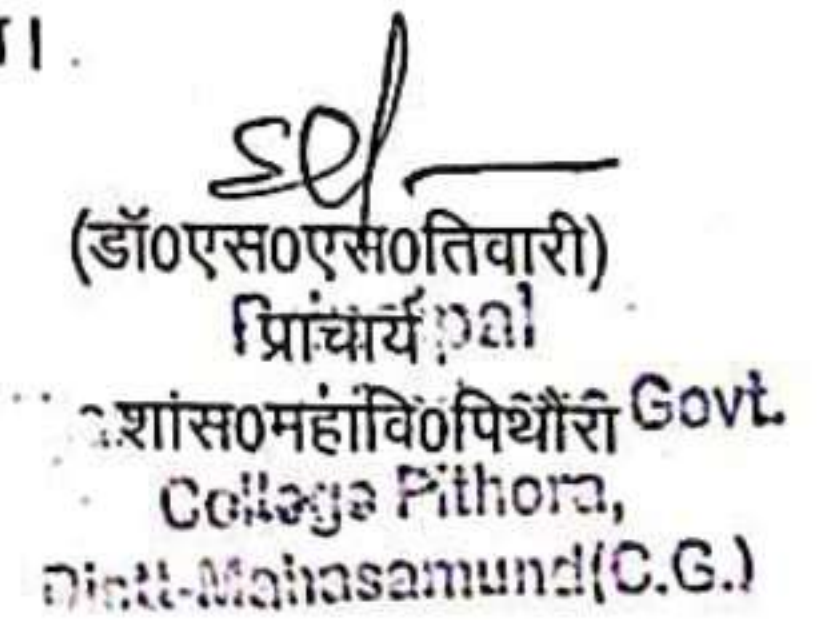 ।
sd/
(डॉ0एस0एस0तिवारी)
प्राचार्य pal
शास0महावि0पिथौरा Govt.
College Pithora,
Distt-Mahasamund(C.G.)